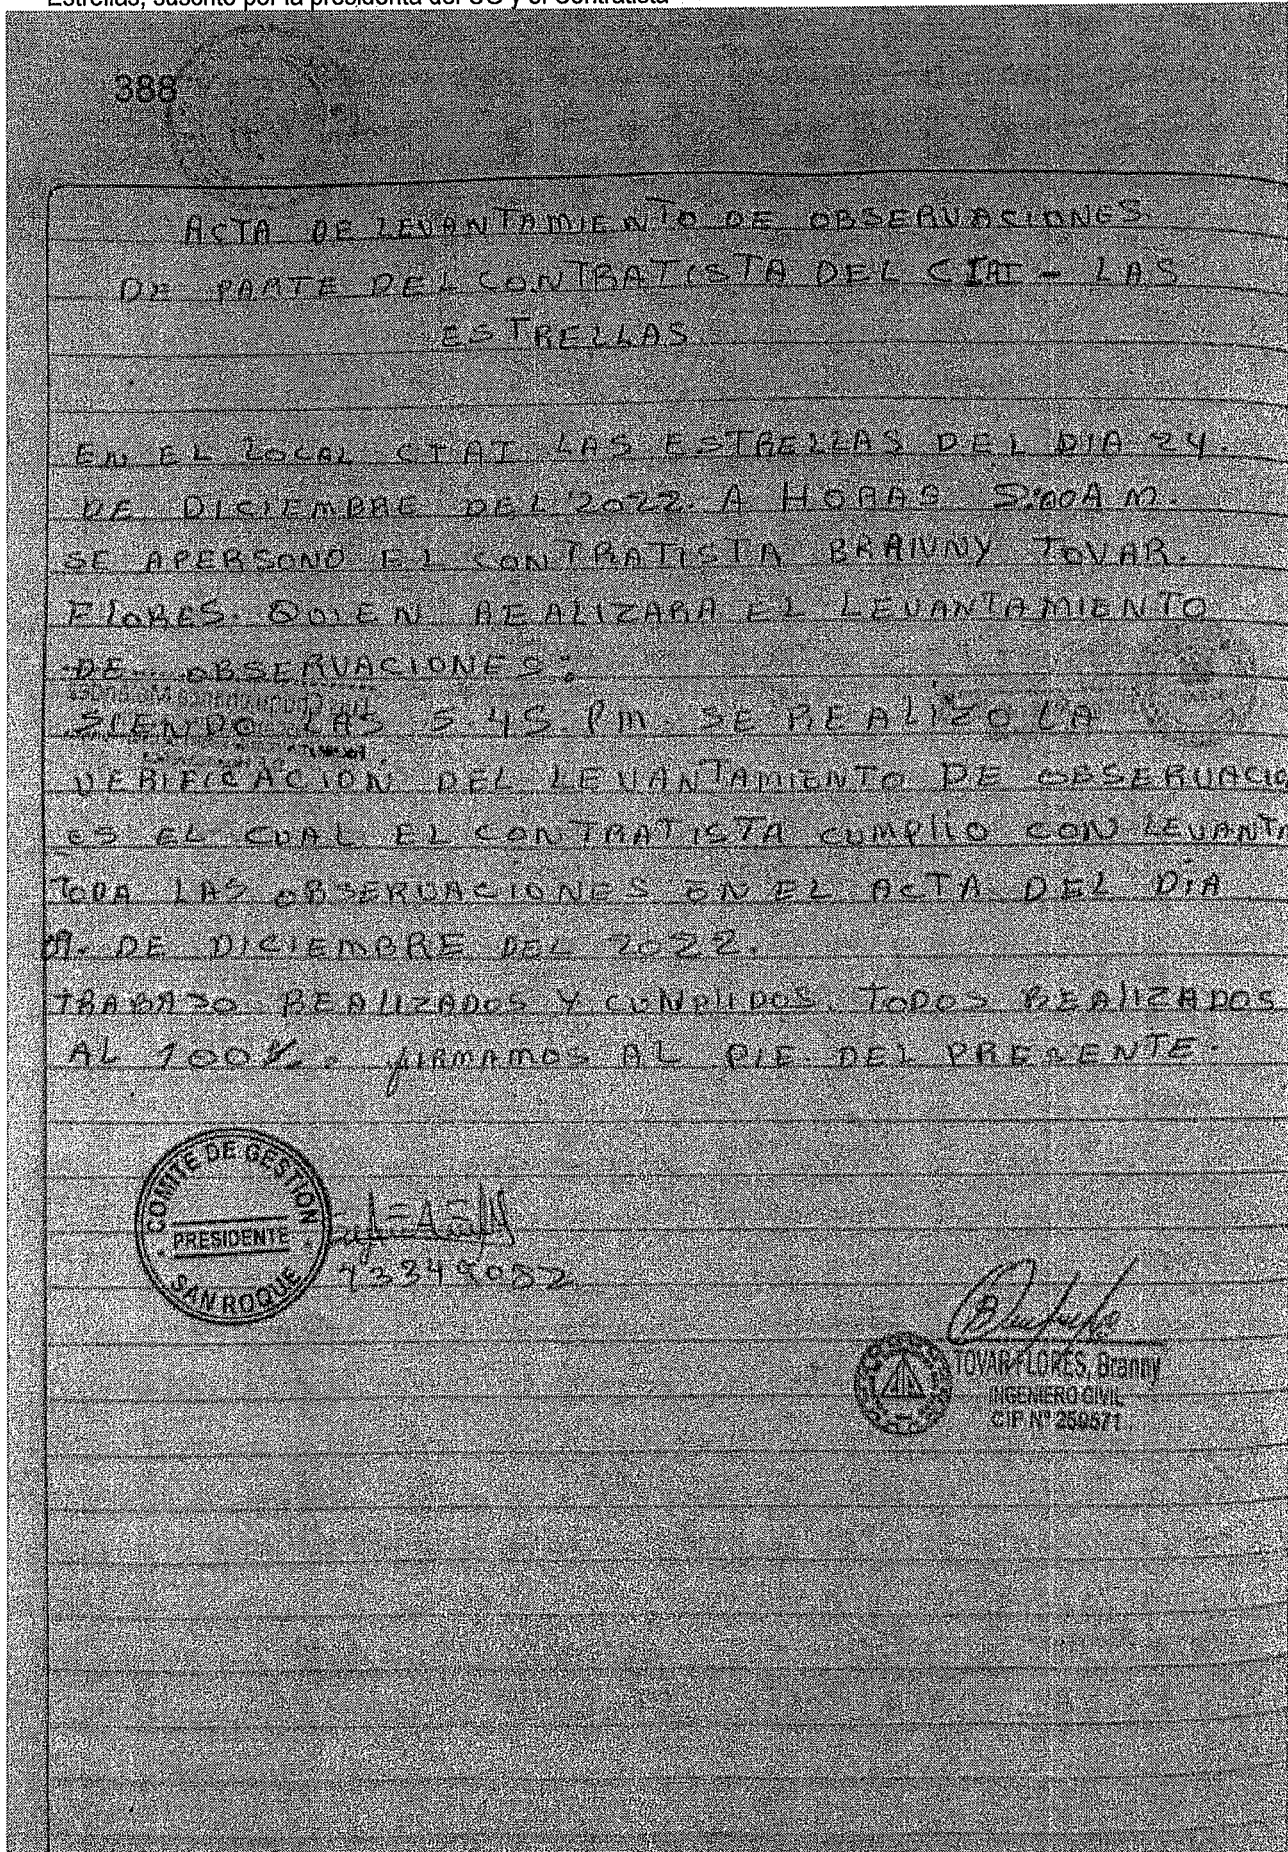 Estrellas, suscrito por la presidenta del CG y el Contratista
388
ACTA DE LEVANTAMIENTO DE OBSERVACIONES
DE PARTE DEL CONTRATISTA DEL CIAI - LAS
ESTRELLAS
EN EL LOCAL CIAI LAS ESTRELLAS DEL DIA 24.
DE DICIEMBRE DEL 2022. A HORAS :00A M.
SE APERSONO EL CONTRATISTA BRANNY TOVAR.
FLORES. QUIEN REALIZARA EL LEVANTAMIENTO
DE OBSERVACIONES:
SIENDO LAS 5:45. PM. SE REALIZO LA
VERIFICACION DEL LEVANTAMIENTO DE OBSERVACIO
ES EL CUAL EL CONTRATISTA CUMPLIO CON LEVANTA
TODA LAS OBSERVACIONES EN EL ACTA DEL DIA
DE DICIEMBRE DEL 2022.
TRABAJO REALIZADOS Y CUMPLIDOS. TODOS REALIZADOS
AL 100%. FIRMAMOS AL PIE DEL PRESENTE.
COMITE DE GESTION
PRESIDENTE
SAN ROQUE
TOVAR FLORES, Branny
INGENIERO CIVIL
CIP N° 259571